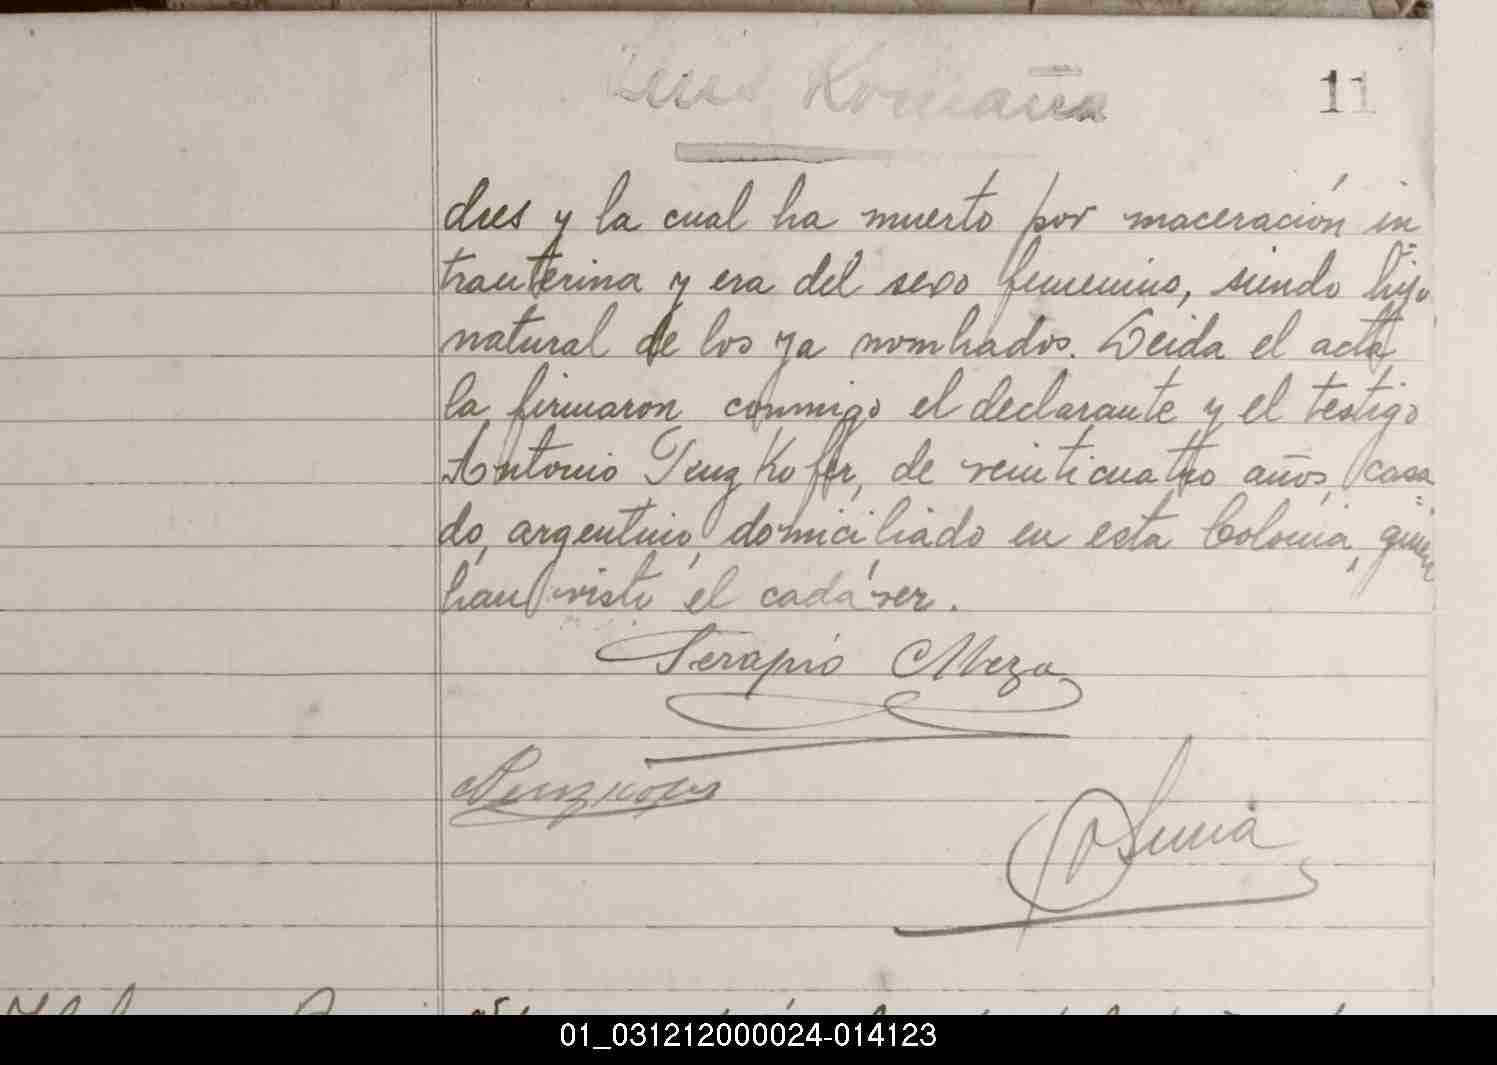 Luis Romaña
11
dres y la cual ha muerto por maceración in
trauterina y era del sexo femenino, siendo hijo
natural de los ya nombrados. Leida el acta
la firmaron conmigo el declarante y el testigo
Antonio Penzkofer, de veinticuatro años, casa
do, argentino, domiciliado en esta Colonia, quien
han visto el cadáver.
Serapio Meza
Penzkofer
01_031212000024-014123